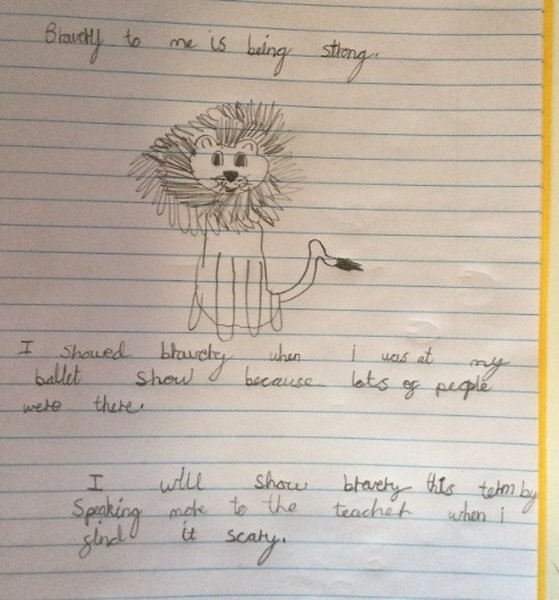 Bravery to me is being strong.
I showed bravery when i was at my
ballet show because lots of people
were there.
I will show bravery this term by
Speaking more to the teacher when i
find it scary.